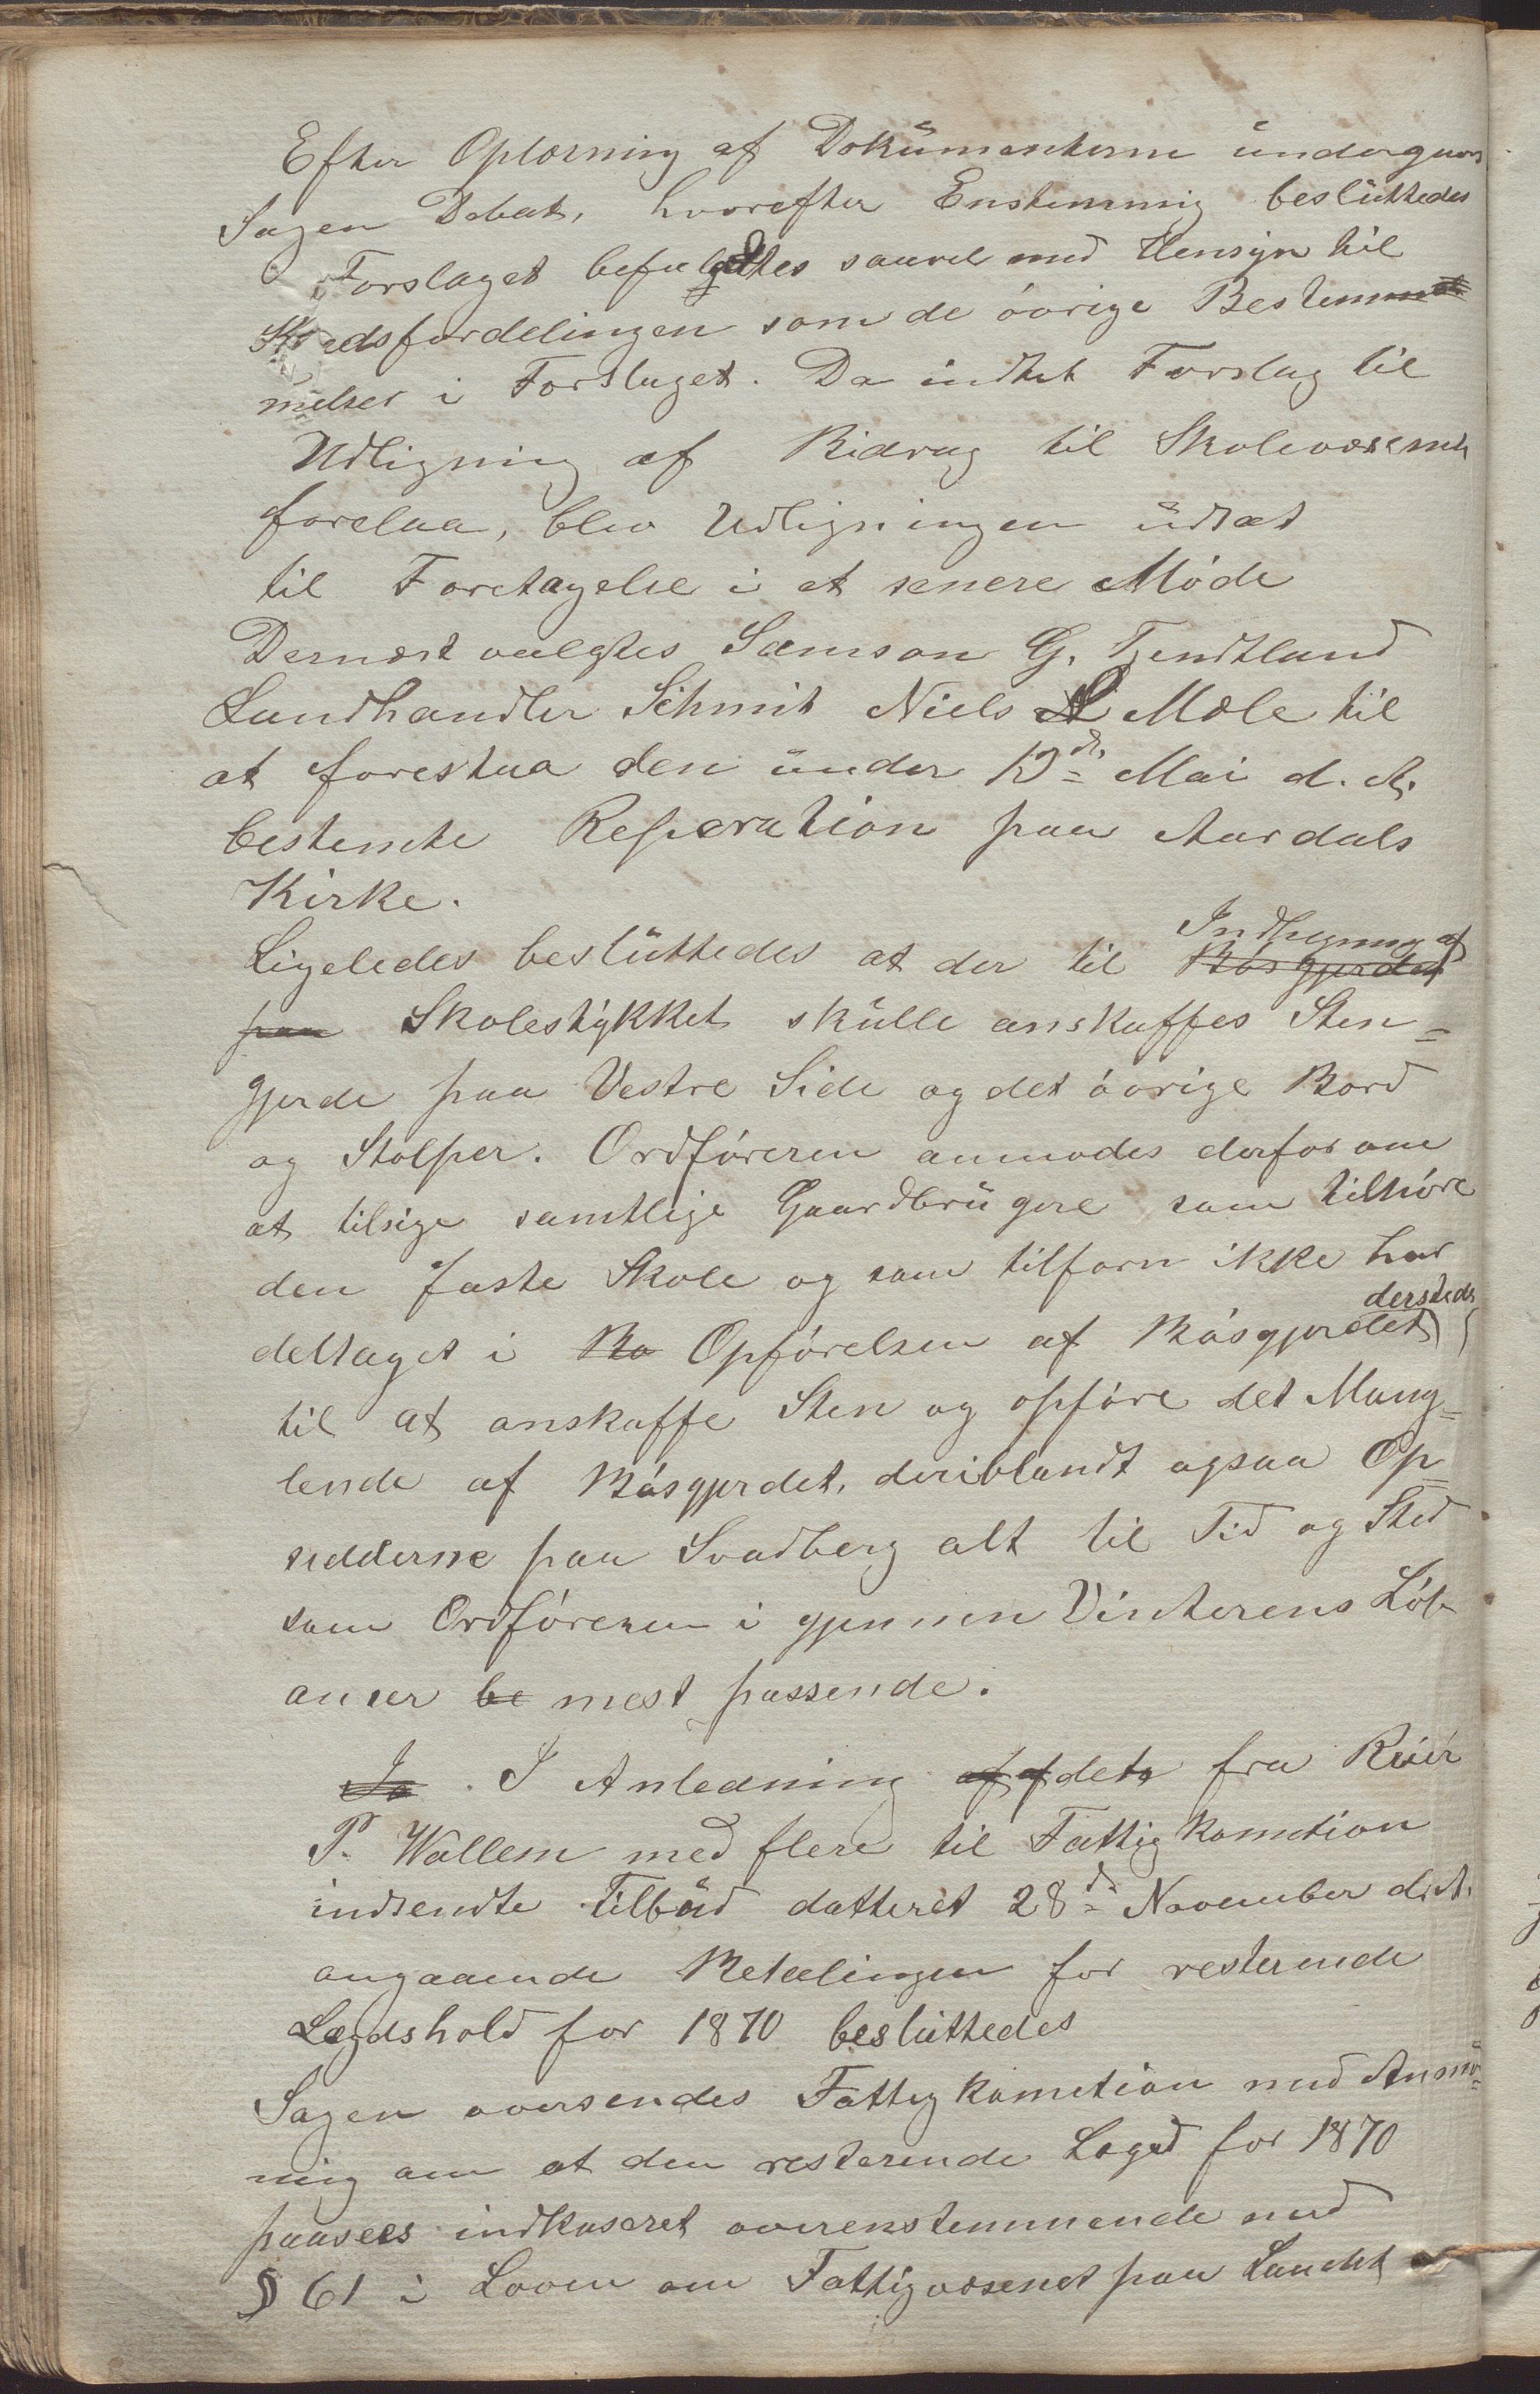 Efter Oplæsning af Dokümenterne ündergives
Sagen Debat, hvorefter Enstemmig beslüttedes
Forslaget befulgdtes saavel med Hensyn til
Kredsfordelingen som de óvrige Bestemm
melser i Forslaget. Da indtet Forslag til
Udligning af Bidrag til Skolevæsenet
forelaa, blev Udligningen üdsat
til Foretagelse i et senere Móde
Dernæst valgtes Samson G. Tjendtland
Landhandler Schmit Niels Mæle til
at forestaa den ünder 12d. Mai d. A.
bestemte Reperation paa Aardals
Kirke.
Ligeledes beslüttedes at der til Bósgjerdet Indhegning af
paa Skolestykket skülle anskaffes Sten=
gjerde paa Vestre Side og det óvrige Bord
og Stolper. Ordfóreren anmodes derfor om
at tilsige samtlige Gaardbrügere som tilhóre
den faste Skole og som tilforn ikke har
deltaget i Bo Opfórelsen af Bósgjerdet dersteds
til at anskaffe Sten og opfóre det Mang=
lende af Bósgjerdet, deriblandt ogsaa Op=
sidderne paa Svadberg alt til Tid og Sted
som Ordfóreren i gjennem Vinterens Lób
anser be mest passende.
Ja. I Anledning af af det fra
P. Wallem med flere til Fattigkomition
indsendte Tilbüd datteret 28d. November d. A.
angaaende Betalingen for resterende
Lægdshold for 1870 beslüttedes
Sagen oversendes Fattigkomition med Anmo=
ning om at den resterende Lægd for 1870
paasees indkaseret overenstemmende med
§ 61 i Loven om Fattigvæsenet paa Landet